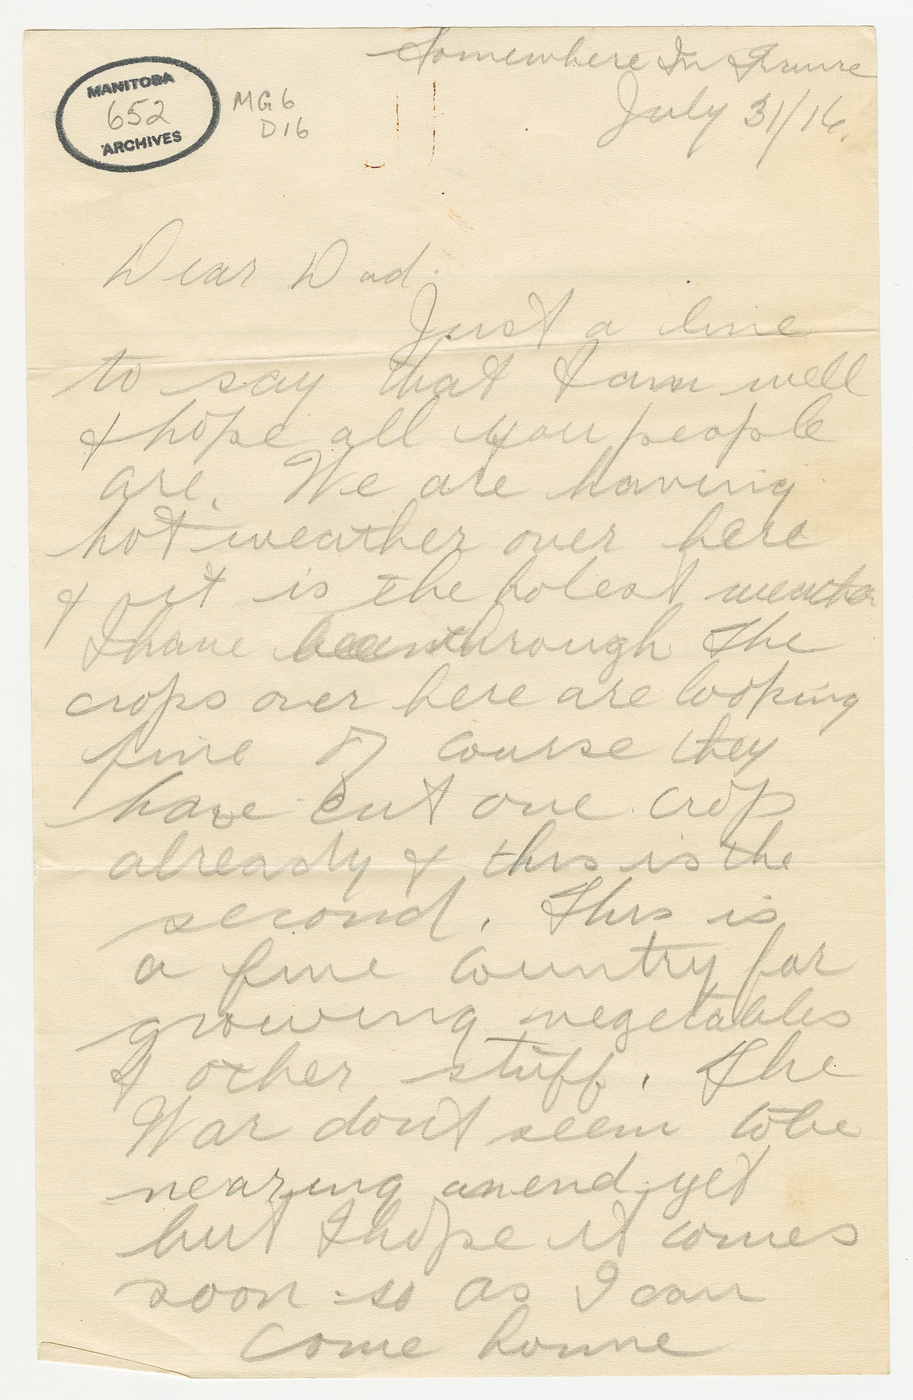 Somewhere In France
July 31/16.
MANITOBA
652
ARCHIVES
MG6
D16
Dear Dad.
Just a line
to say that I am well
& hope all you people
are. We are having
hot weather over here
& it is the hotest weather
I have been through. The
crops over here are looking
fine of course they
have cut one crop
already & this is the
second. This is
a fine country for
growing vegetables
& other stuff. The
War dont seem to be
nearing an end yet
but I hope it comes
soon so as I can
come home